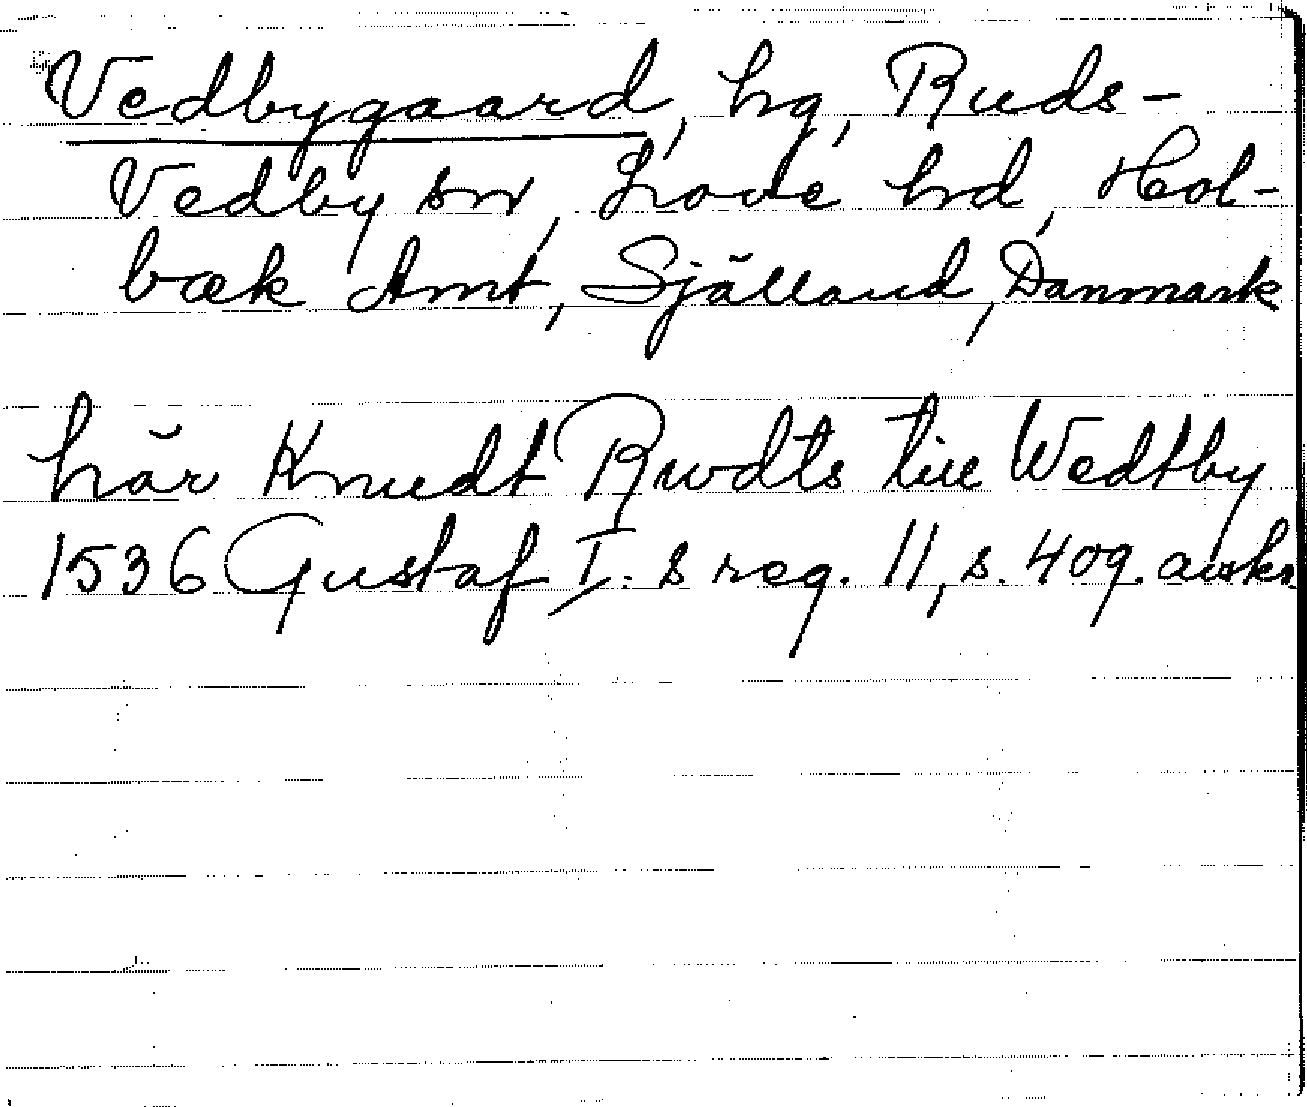 Vedbygaard, hg, Ruds-
Vedby sn, Love hd, Hol-
bæk Amt, Själland, Danmark
här Knudt Rwdts till Wedtby
1536 Gustaf I:s reg. 11, s. 409. avskr.